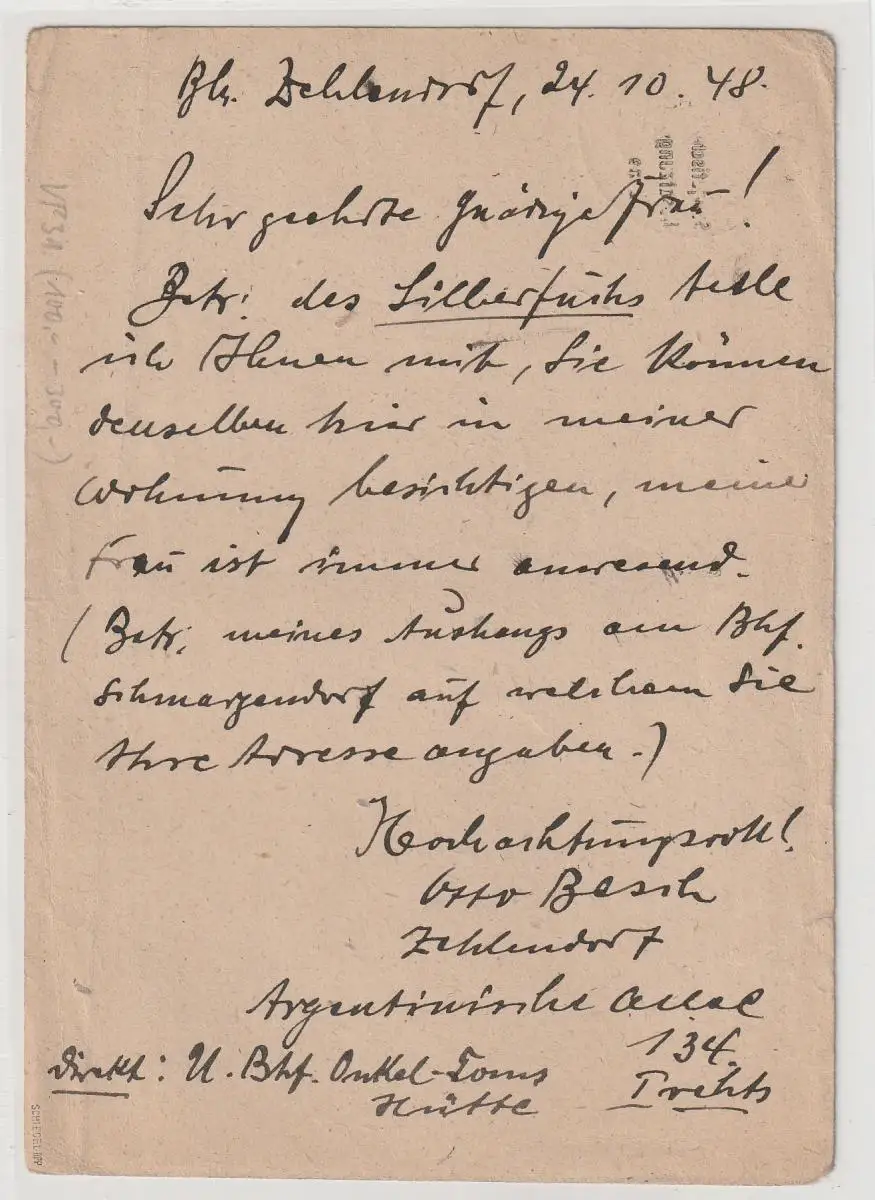 Bln. Zehlendorf, 24. 10. 48.
Sehr geehrte gnädige Frau!
Betr: des Silberfuchs teile
ich Ihnen mit, Sie können
denselben hier in meiner
Wohnung besichtigen, meine
Frau ist immer anwesend.
(Betr. meines Aushangs am Bhf.
Schmargendorf auf welchem Sie
Ihre Adresse angaben.)
Hochachtungsvoll!
Otto Besch
Zehlendorf
Argentinische Allee
134.
direkt: U. Bhf. Onkel-Toms
Hütte
I rechts
(100.- – 300.-)
SCHLEGEL BPP